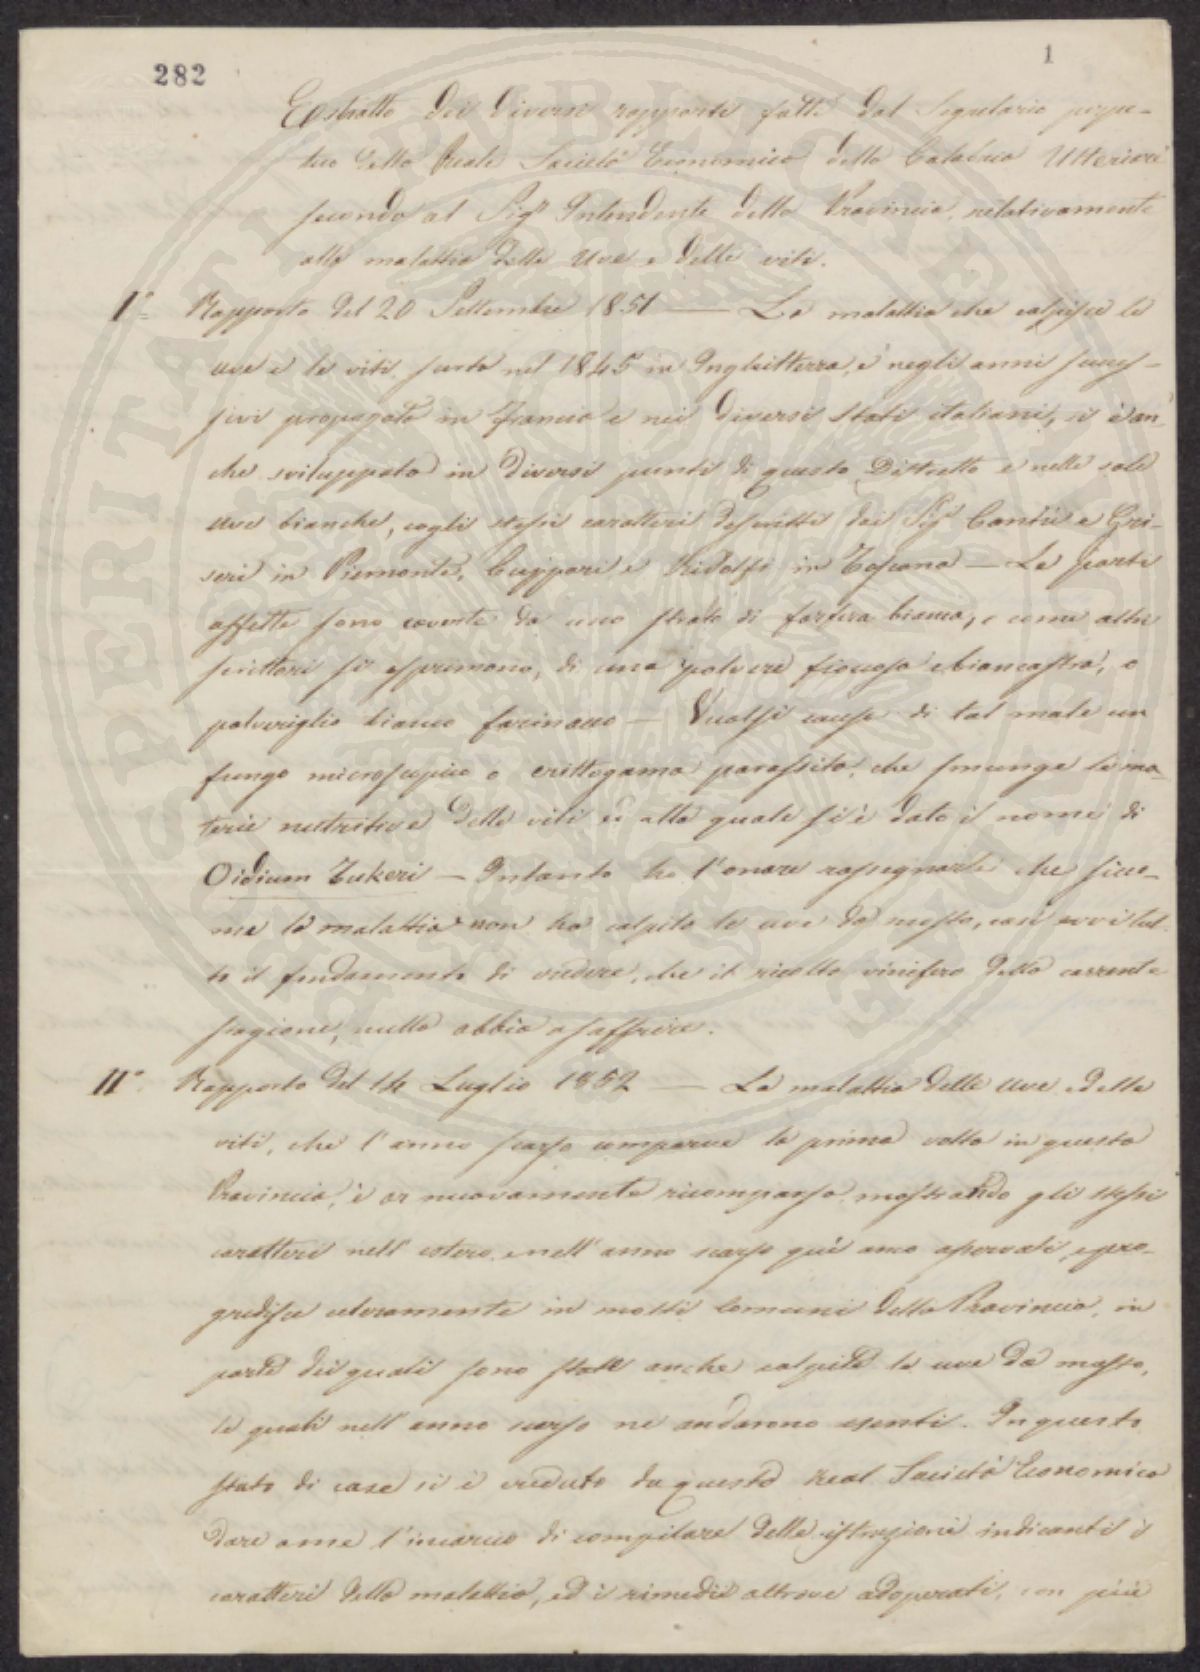 282
1
Estratto dei diversi rapporti fatti dal Segretario perpe-
tuo della Reale Società Economica della Calabria Ulteriore
seconda al Sigr Intendente della Provincia, relativamente
alla malattia delle Uve e delle viti.
I° Rapporto del 20 Settembre 1851 — La malattia che colpisce le
uve e le viti surta nel 1845 in Inghilterra, e negli anni succes-
sivi propagata in Francia e nei diversi Stati italiani, si è an-
che sviluppata in diversi punti di questo Distretto e nelle sole
uve bianche, cogli stessi caratteri descritti dai Sigri Cantù e Gri-
seri in Piemonte, Cuppari e Ridolfi in Toscana — Le parti
affette sono coverte da uno strato di forfora bianca, o come altri
scrittori si esprimono, di una polvere fioccosa e biancastra, o
polveriglio bianco farinaceo — Vuolsi causa di tal male un
fungo microscopico o crittogama parassita, che smunge le ma-
terie nutritive delle viti ed alla quale si è dato il nome di
Oidium Tukeri — Intanto ho l'onore rassegnarle che sicco-
me la malattia non ha colpito le uve da mosto, così evvi tut-
to il fondamento di credere, che il ricolto vinifero della corrente
stagione, nulla abbia a soffrire.
II° Rapporto del 14 Luglio 1852 — La malattia delle uve e delle
viti, che l'anno scorso comparve la prima volta in questa
Provincia, è or nuovamente ricomparsa mostrando gli stessi
caratteri nell'estero, e nell'anno scorso quì anco osservati, e pro-
gredisce celeramente in molti Comuni della Provincia, in
parte dei quali sono state anche colpite le uve da mosto,
le quali nell'anno scorso ne andarono esenti. In questo
stato di cose si è creduto da questa Real Società Economica
dare a me l'incarico di compilare delle istruzioni indicanti i
caratteri della malattia, ed i rimedii altrove adoperati, con più
ASPERITATI PUBLICAE